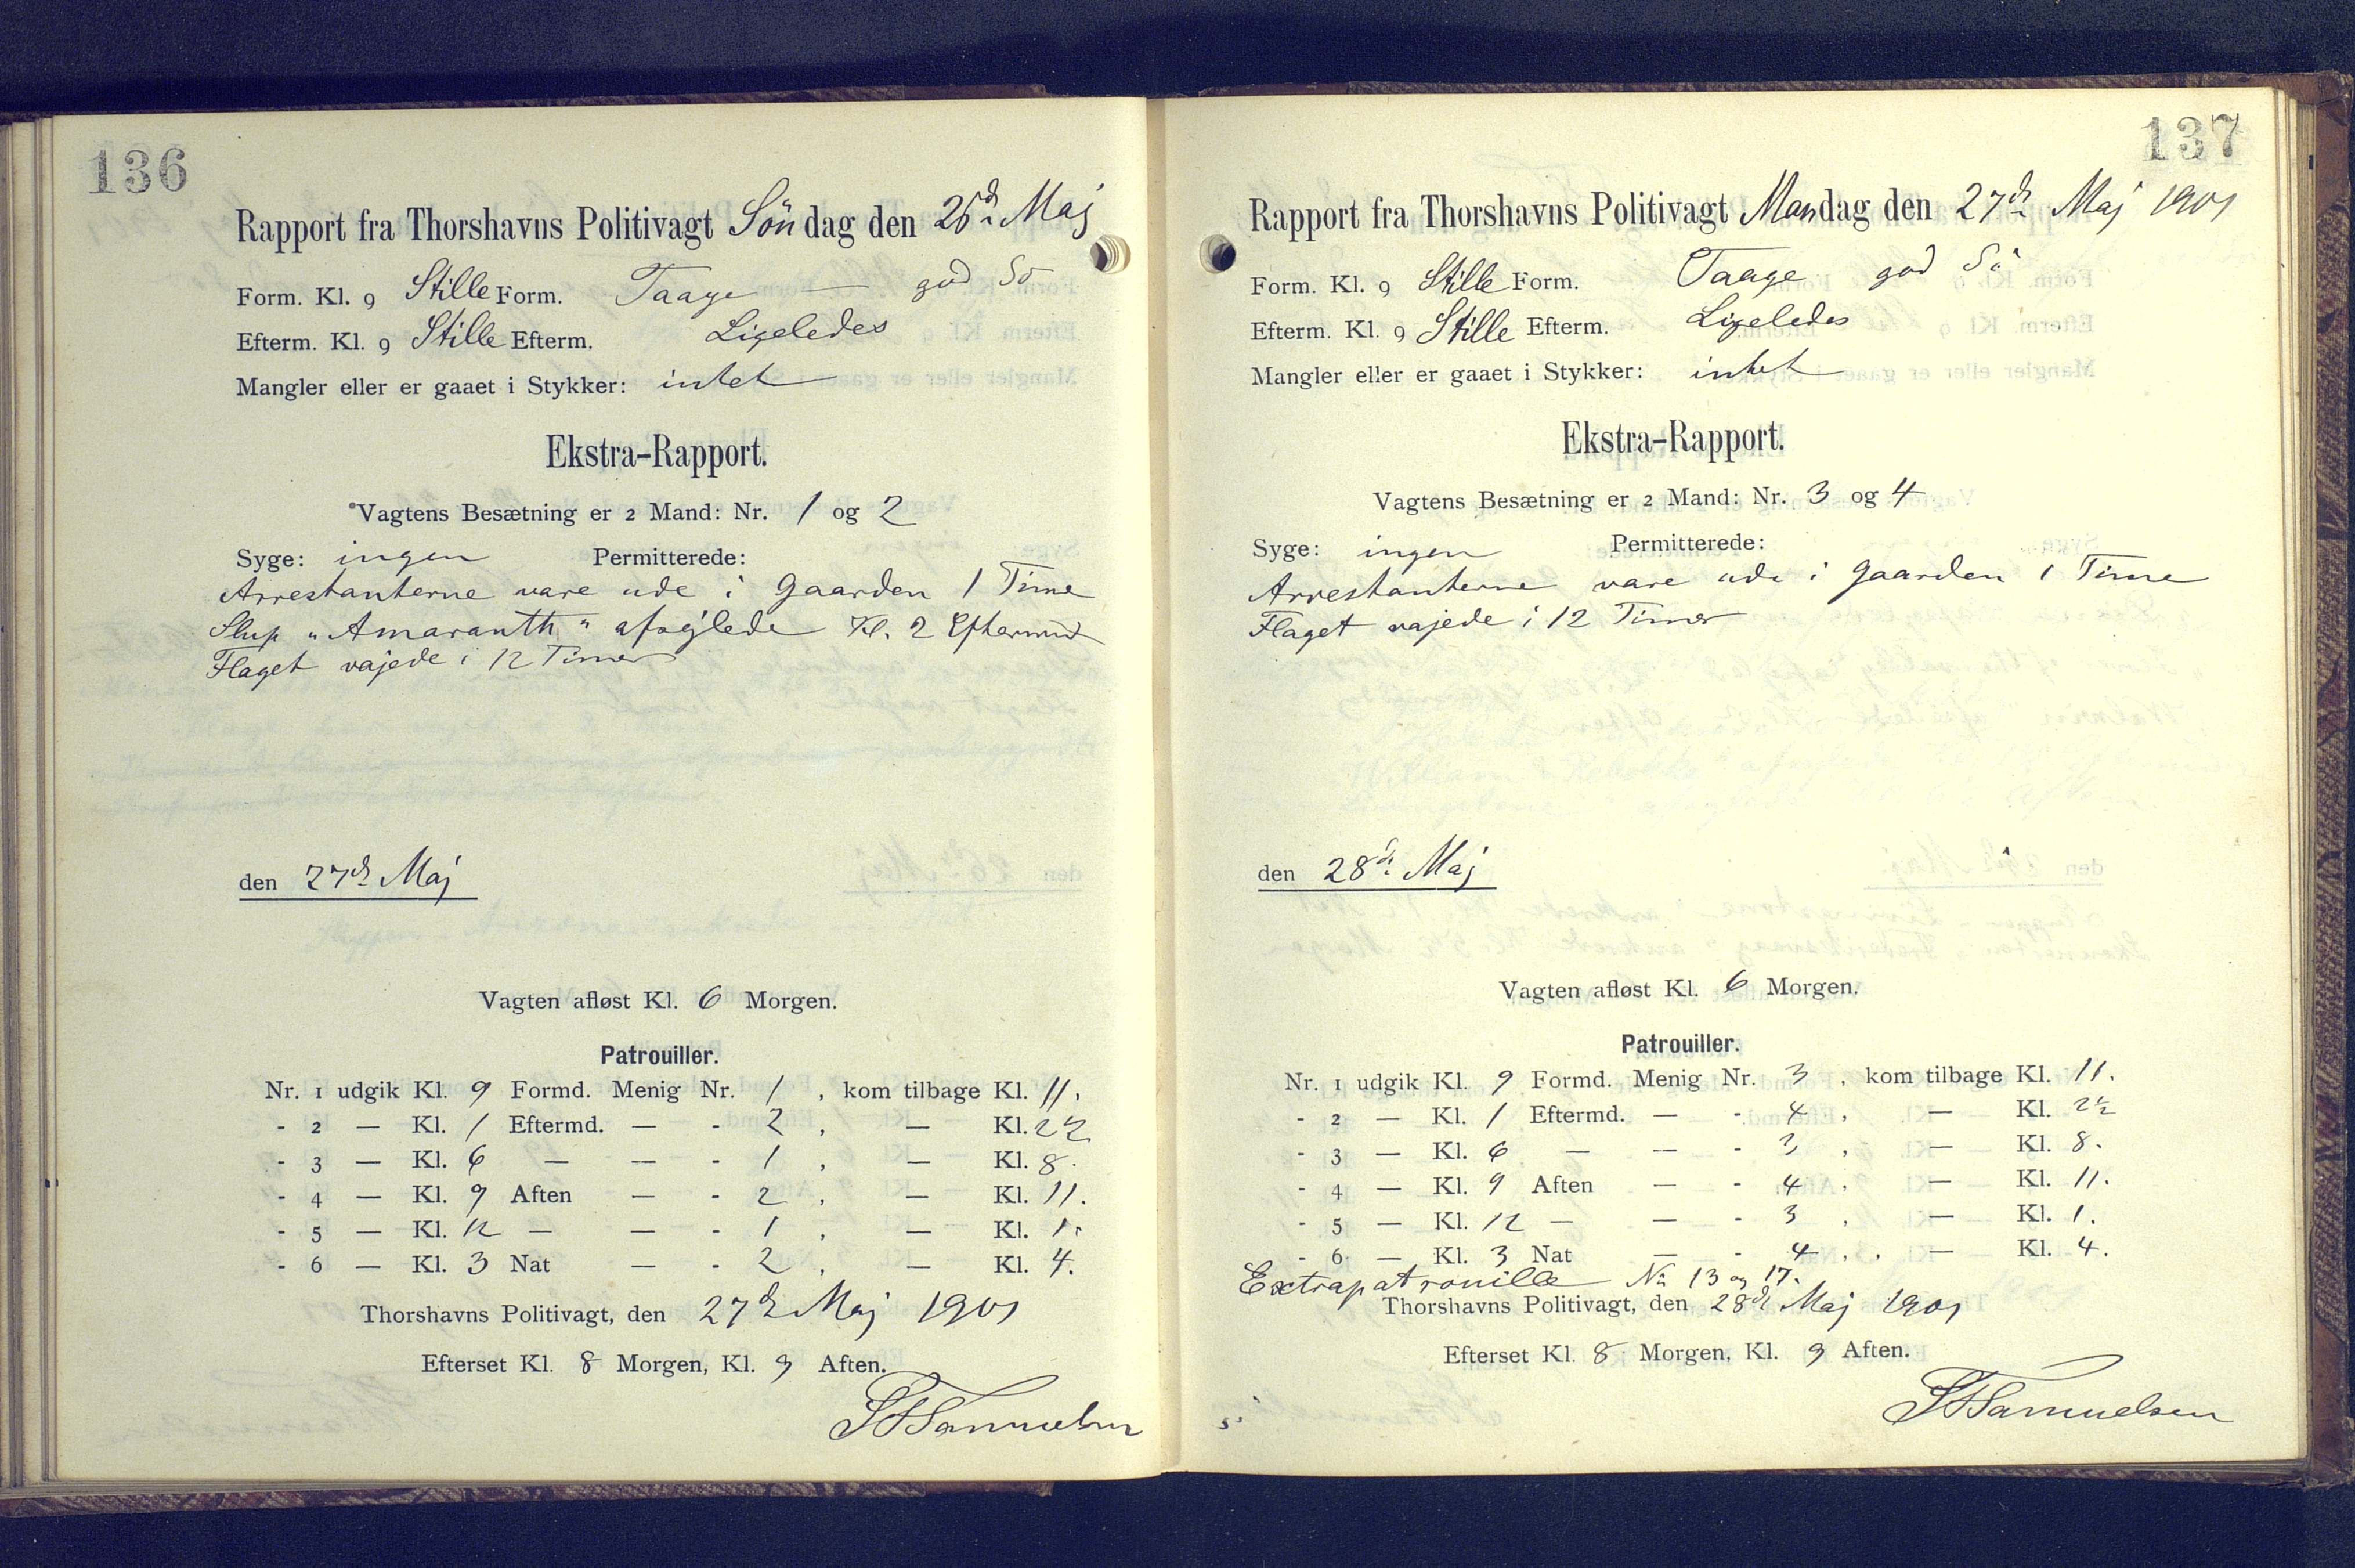 136
Rapport fra Thorshavns Politivagt Söndag den 26d Maj
Form. Kl. 9 Stille Form. Taage — god Sö
Efterm. Kl. 9 Stille Efterm. Ligeledes
Mangler eller er gaaet i Stykker: intet
Ekstra-Rapport.
Vagtens Besætning er 2 Mand: Nr. 1 og 2
Syge: ingen Permitterede:
Arrestanterne vare ude i Gaarden 1 Time
Slup „Amaranth" afsejlede Kl. 2 Eftermd
Flaget vajede i 12 Timer
den 27d Maj
Vagten afløst Kl. 6 Morgen.
Patrouiller.
Nr. 1 udgik Kl. 9 Formd. Menig Nr. 1, kom tilbage Kl. 11.
- 2 — Kl. 1 Eftermd. — - 2, — Kl. 2½
- 3 — Kl. 6 — — - 1, — Kl. 8.
- 4 — Kl. 9 Aften — - 2, — Kl. 11.
- 5 — Kl. 12 — — - 1, — Kl. 1.
- 6 — Kl. 3 Nat — - 2, — Kl. 4.
Thorshavns Politivagt, den 27d Maj 1901
Efterset Kl. 8 Morgen, Kl. 9 Aften.
Samuelsen
137
Rapport fra Thorshavns Politivagt Mandag den 27d Maj 1901
Form. Kl. 9 Stille Form. Taage god Sö
Efterm. Kl. 9 Stille Efterm. Ligeledes
Mangler eller er gaaet i Stykker: intet
Ekstra-Rapport.
Vagtens Besætning er 2 Mand: Nr. 3 og 4
Syge: ingen Permitterede:
Arrestanterne vare ude i Gaarden 1 Time
Flaget vajede i 12 Timer
den 28d Maj
Vagten afløst Kl. 6 Morgen.
Patrouiller.
Nr. 1 udgik Kl. 9 Formd. Menig Nr. 3, kom tilbage Kl. 11.
- 2 — Kl. 1 Eftermd. — - 4, — Kl. 2½
- 3 — Kl. 6 — — - 3, — Kl. 8.
- 4 — Kl. 9 Aften — - 4, — Kl. 11.
- 5 — Kl. 12 — — - 3, — Kl. 1.
- 6 — Kl. 3 Nat — - 4, — Kl. 4.
Extrapatrouille No 13 og 17.
Thorshavns Politivagt, den 28d Maj 1901
Efterset Kl. 8 Morgen, Kl. 9 Aften.
Samuelsen